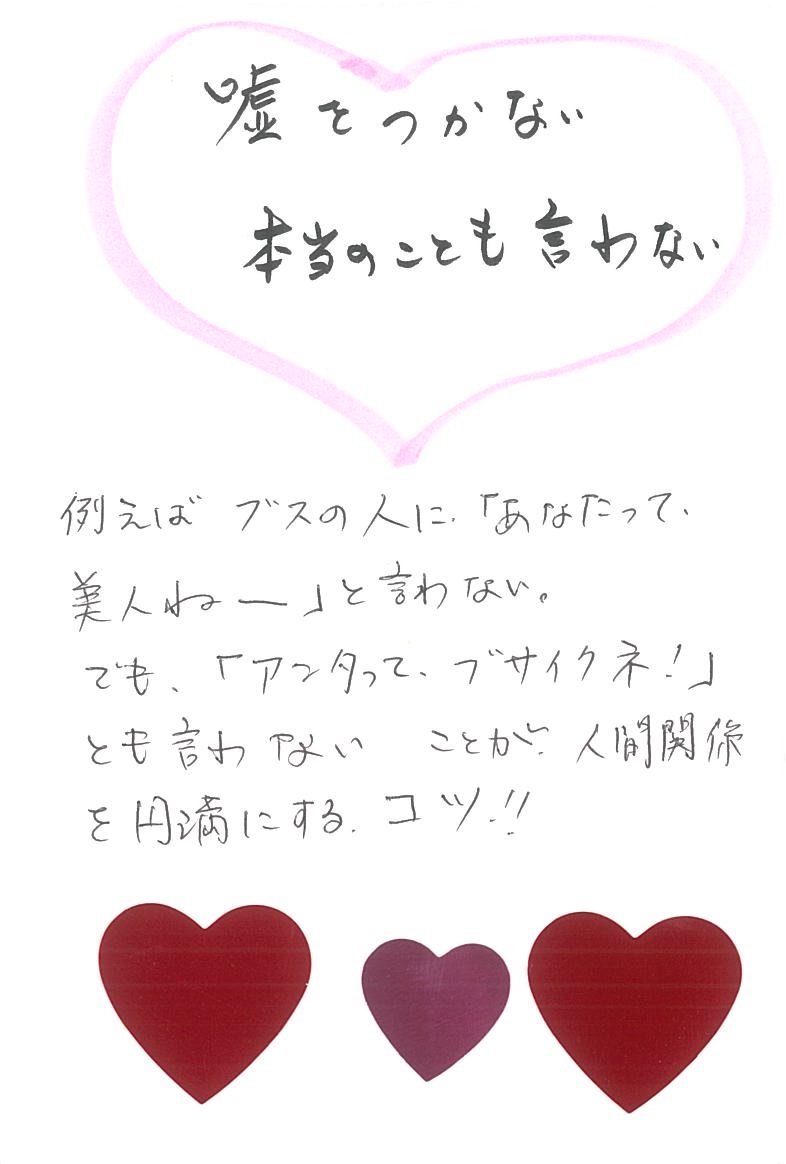 嘘をつかない
本当のことも言わない
例えば ブスの人に、「あなたって、
美人ねー」と言わない。
でも、「アンタって、ブサイクネ!」
とも言わない ことが、人間関係
を円満にする、コツ!!